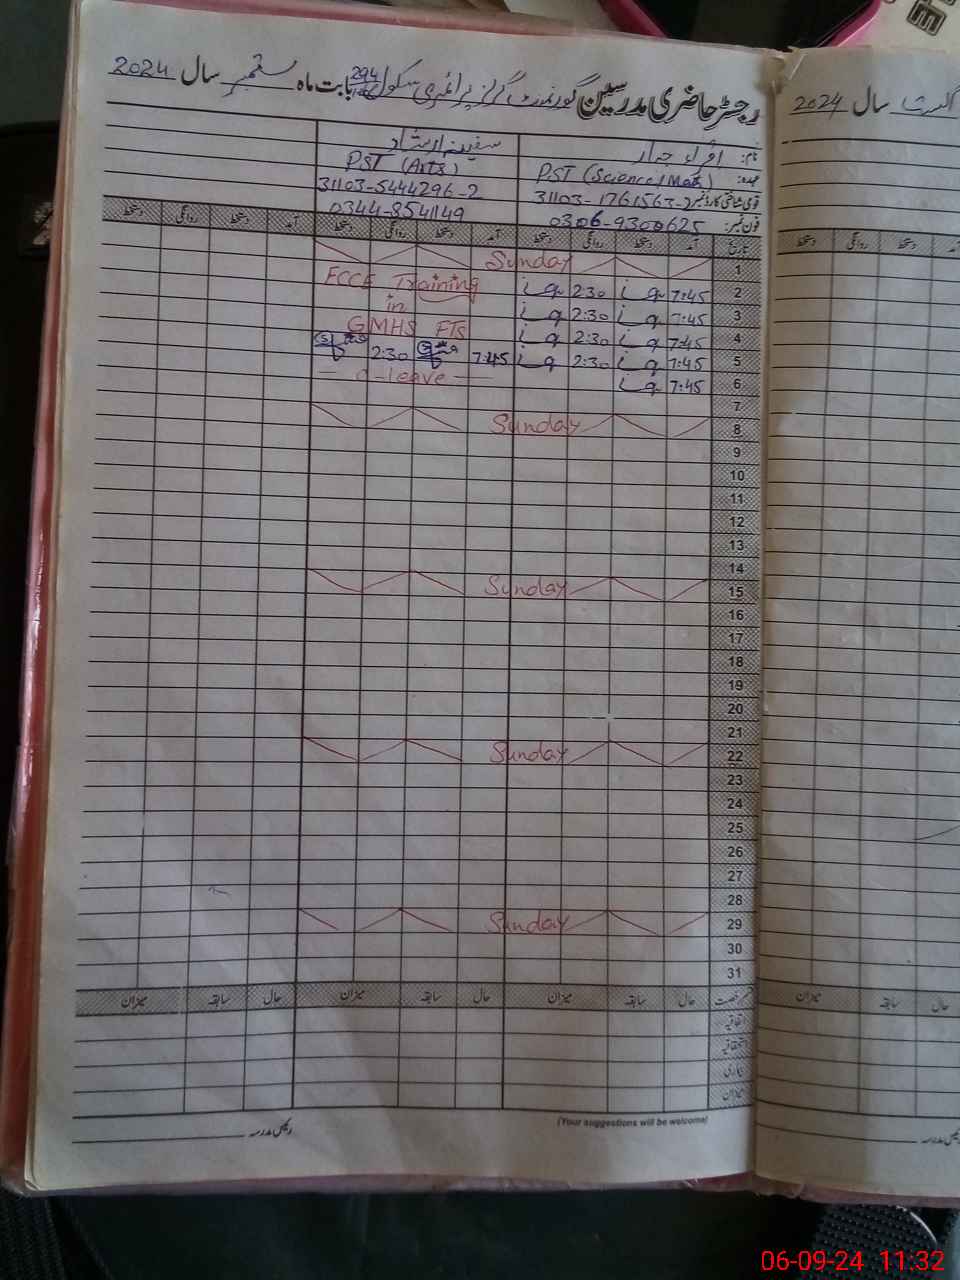 رجسٹر حاضری مدرسین گورنمنٹ گرلز پرائمری سکول 294 بابت ماہ ستمبر سال 2024
نام: اقراء جبار سفینہ ارشاد
عہدہ: PST (Science/Math) PST (Arts)
قومی شناختی کارڈ نمبر: 31103-1761563-2 31103-5444296-2
فون نمبر: 0306-9300625 0344-8541149
تاریخ آمد دستخط روانگی دستخط آمد دستخط روانگی دستخط آمد دستخط روانگی دستخط
1 Sunday
2 7:45 2:30 ECCE Training
3 7:45 2:30 in
4 7:45 2:30 GMHS FTS
5 7:45 2:30 7:45 2:30
6 7:45 leave
7
8 Sunday
9
10
11
12
13
14
15 Sunday
16
17
18
19
20
21
22 Sunday
23
24
25
26
27
28
29 Sunday
30
31
رخصت حال سابقہ میزان حال سابقہ میزان حال سابقہ میزان
اتفاقیہ
استحقاقیہ
بیماری
میزان
(Your suggestions will be welcome)
رئیس مدرسہ
اگست سال 2024
آمد دستخط روانگی دستخط
حال سابقہ میزان
رئیس مدرسہ
06-09-24 11:32